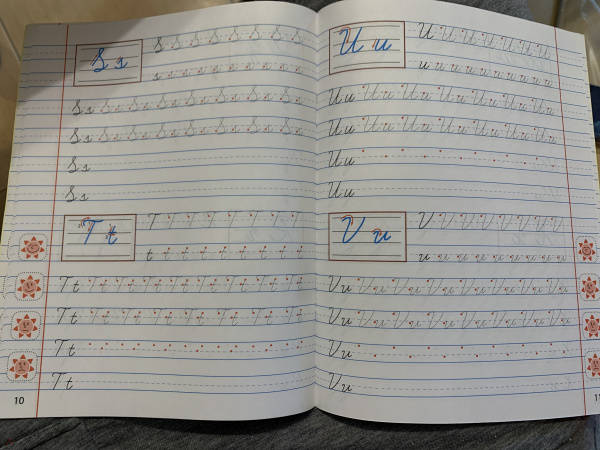 S s
S S S S S S S S S
s s s s s s s s s s
Ss Ss Ss Ss Ss Ss Ss Ss
Ss Ss Ss Ss Ss Ss Ss Ss
Ss
Ss
T t
T T T T T T T T
t t t t t t t t t t t
Tt Tt Tt Tt Tt Tt Tt Tt
Tt Tt Tt Tt Tt Tt Tt Tt
Tt
Tt
10
U u
U U U U U U U
u u u u u u u u u
Uu Uu Uu Uu Uu Uu Uu
Uu Uu Uu Uu Uu Uu Uu
Uu
Uu
V v
V V V V V V V V
v v v v v v v v
Vv Vv Vv Vv Vv Vv Vv
Vv Vv Vv Vv Vv Vv Vv
Vv
Vv